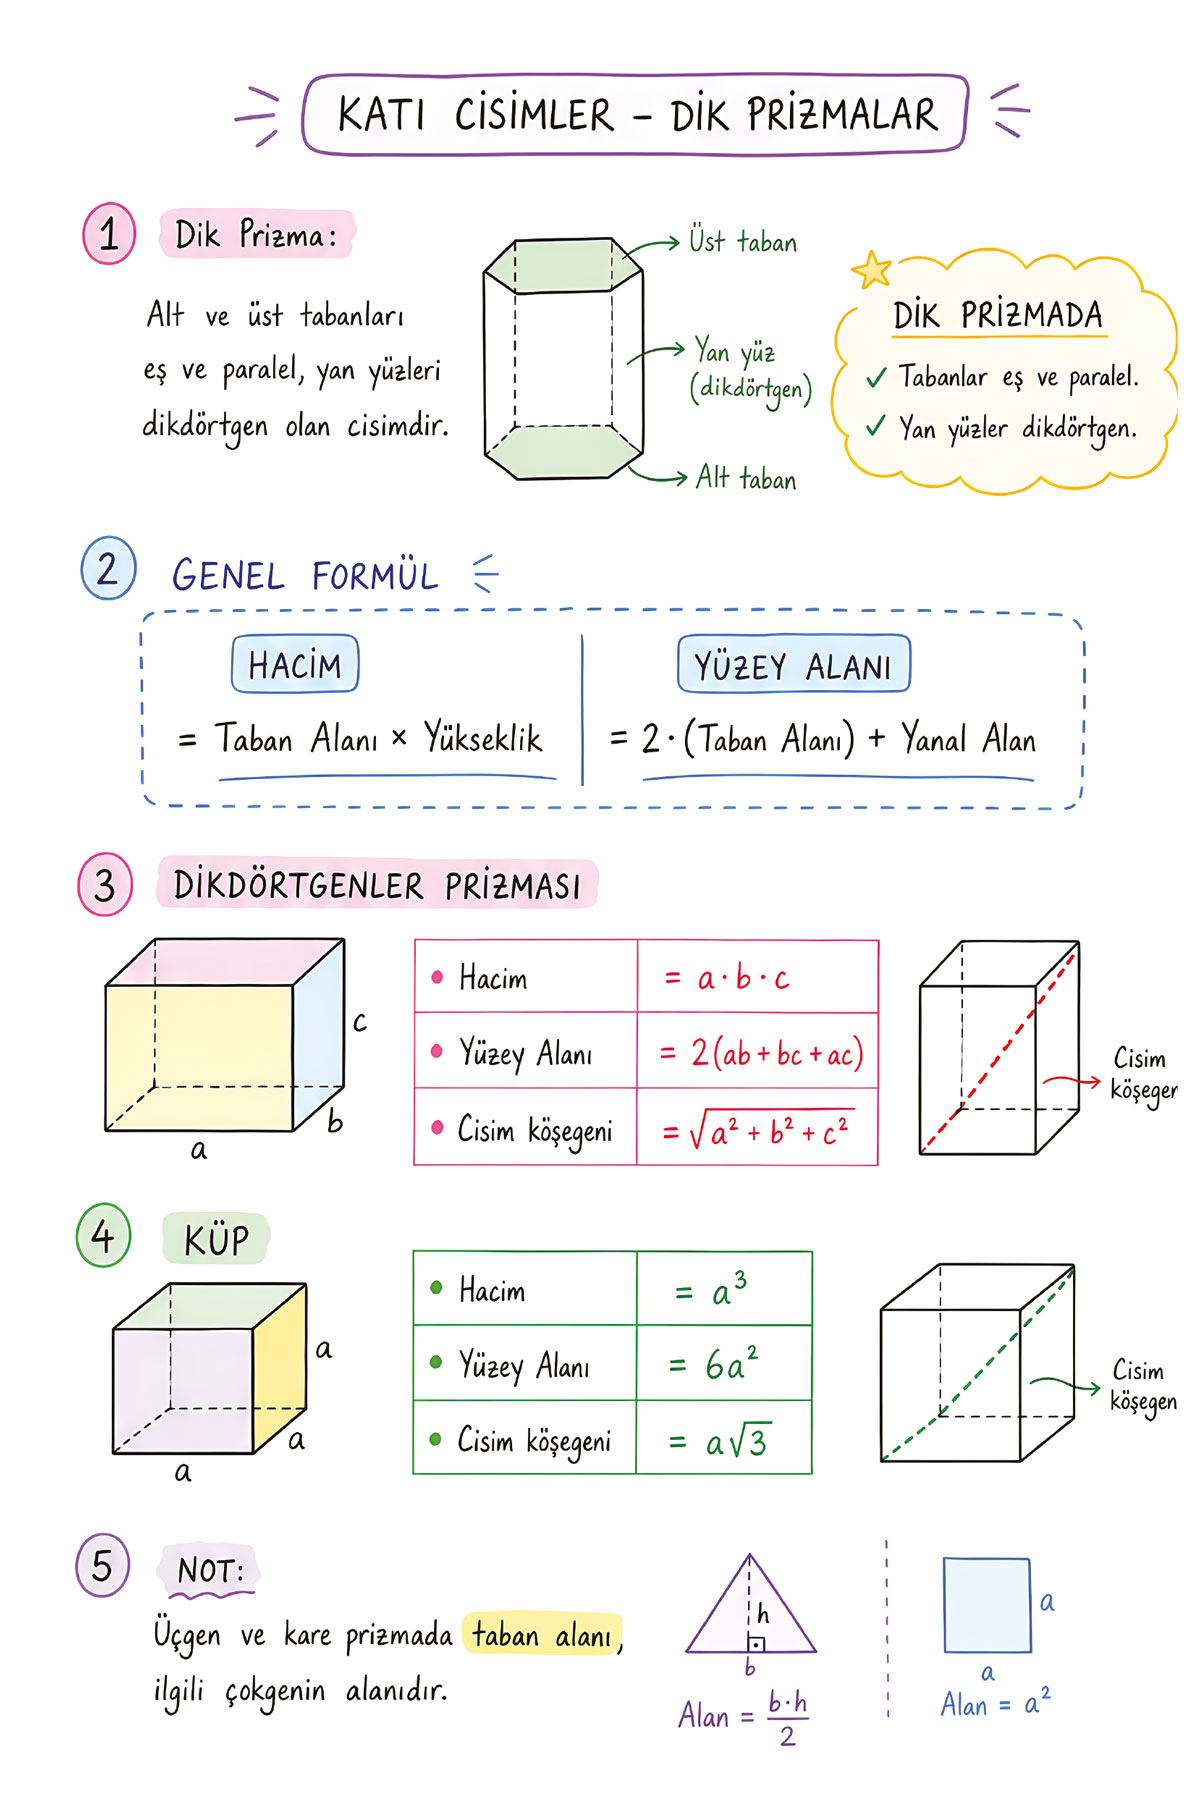 KATI CİSİMLER – DİK PRİZMALAR
1 Dik Prizma:
Alt ve üst tabanları
eş ve paralel, yan yüzleri
dikdörtgen olan cisimdir.
Üst taban
Yan yüz
(dikdörtgen)
Alt taban
DİK PRİZMADA
✓ Tabanlar eş ve paralel.
✓ Yan yüzler dikdörtgen.
2 GENEL FORMÜL
HACİM
= Taban Alanı × Yükseklik
YÜZEY ALANI
= 2·(Taban Alanı) + Yanal Alan
3 DİKDÖRTGENLER PRİZMASI
c
b
a
• Hacim = a·b·c
• Yüzey Alanı = 2(ab+bc+ac)
• Cisim köşegeni = √(a² + b² + c²)
Cisim
köşeger
4 KÜP
a
a
a
• Hacim = a³
• Yüzey Alanı = 6a²
• Cisim köşegeni = a√3
Cisim
köşegen
5 NOT:
Üçgen ve kare prizmada taban alanı,
ilgili çokgenin alanıdır.
h
b
Alan = b·h/2
a
a
Alan = a²